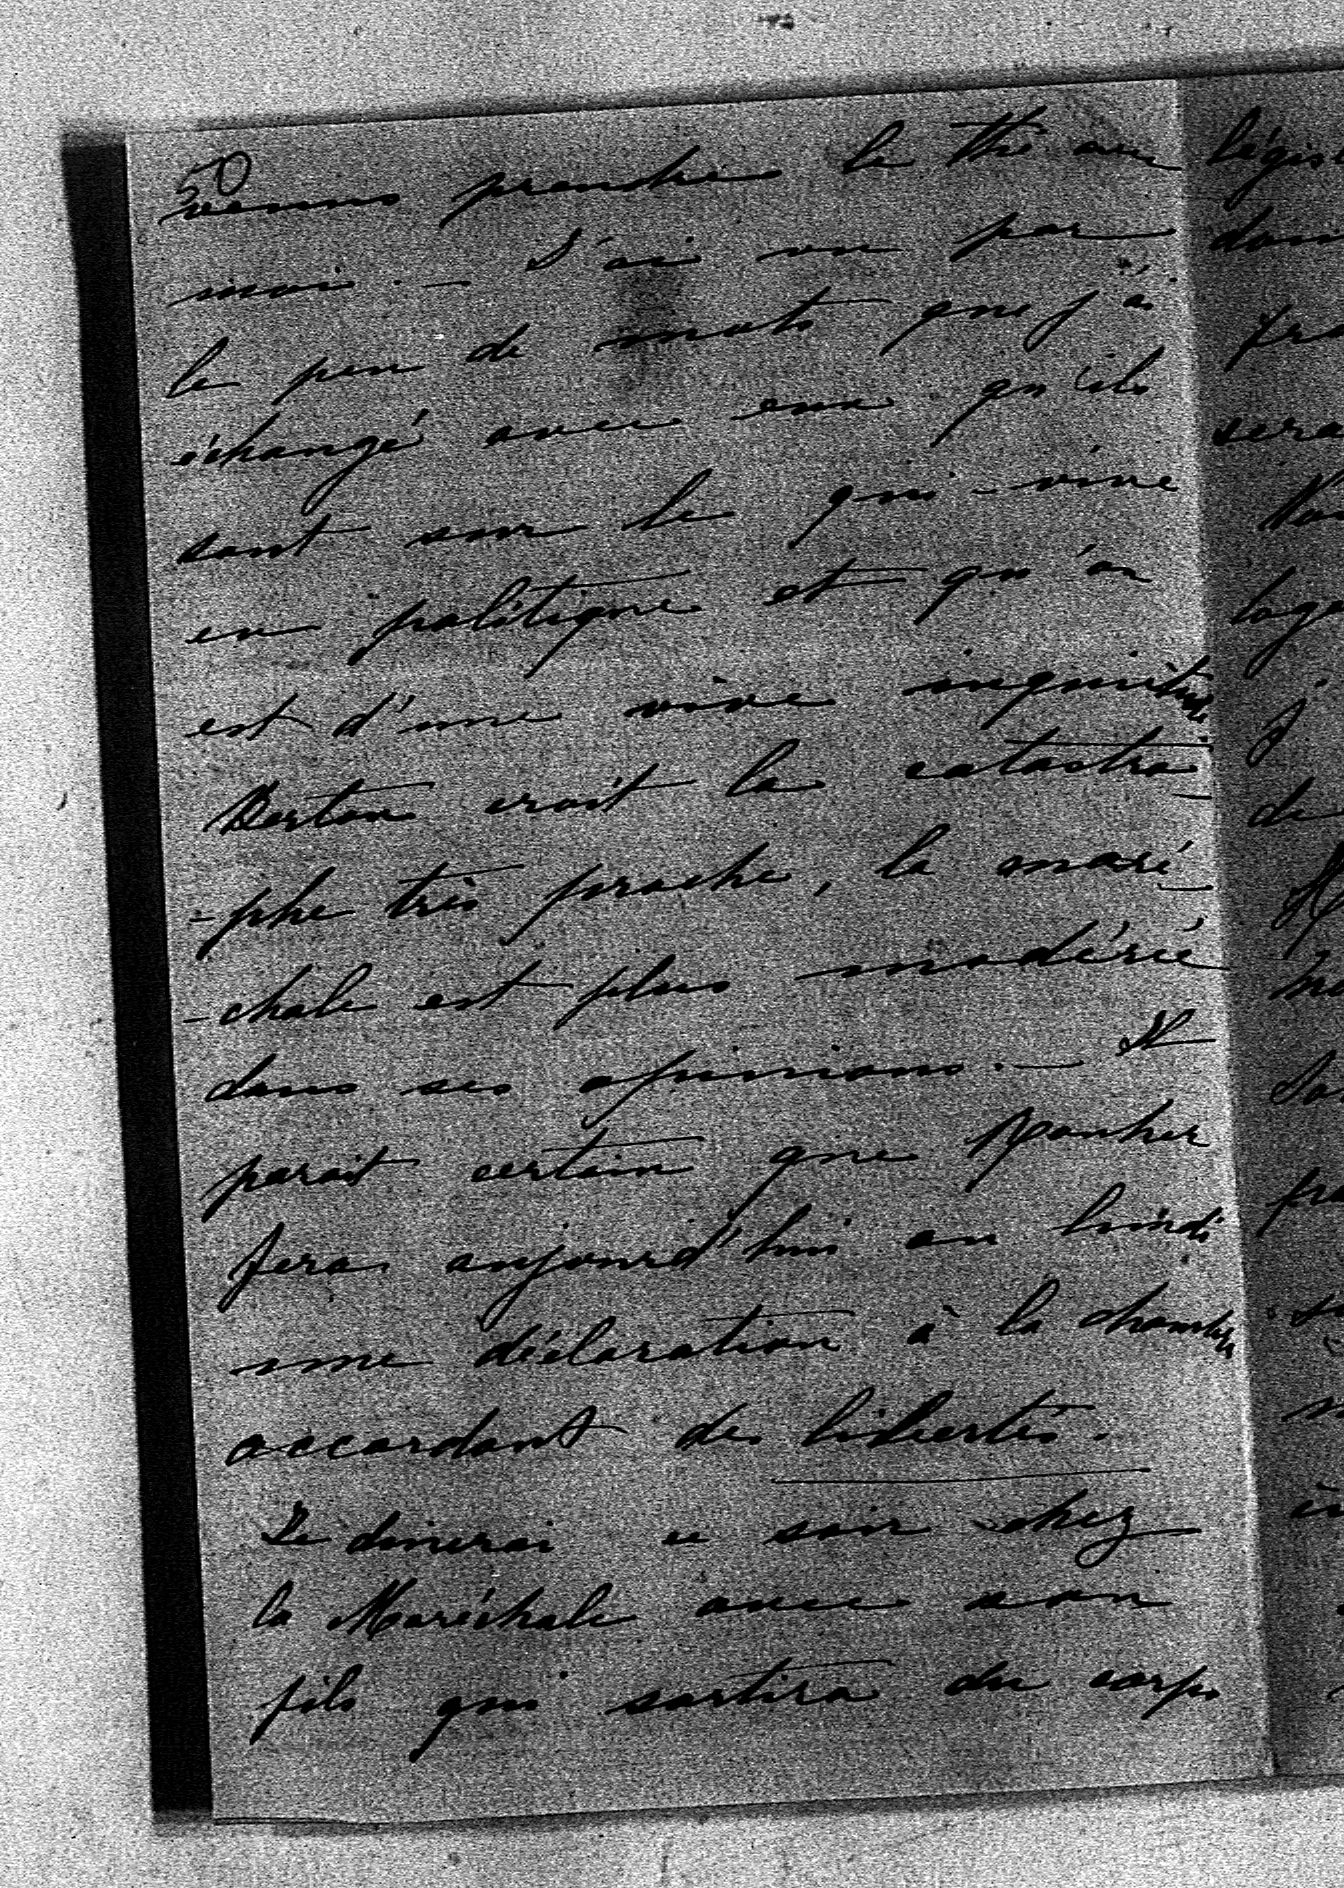 50
venus prendre le thé avec
moi. — J'ai vu par
le peu de mots que j'ai
échangé avec eux qu'ils
sont sur le qui-vive
en politique et qu'on
est d'une vive inquiétude
Berton croit la catastro-
-phe très proche, la maré-
-chale est plus modérée
dans ses opinions. — Il
parait certain que Rouher
fera aujourd'hui ou lundi
une déclaration à la chambre
accordant des libertés.
Je dinerai ce soir chez
la Maréchale avec son
fils qui sortira du corps